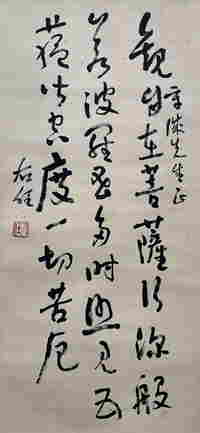 誠先生正
觀自在菩薩行深般
若波羅蜜多時照見五
蘊皆空度一切苦厄
右任